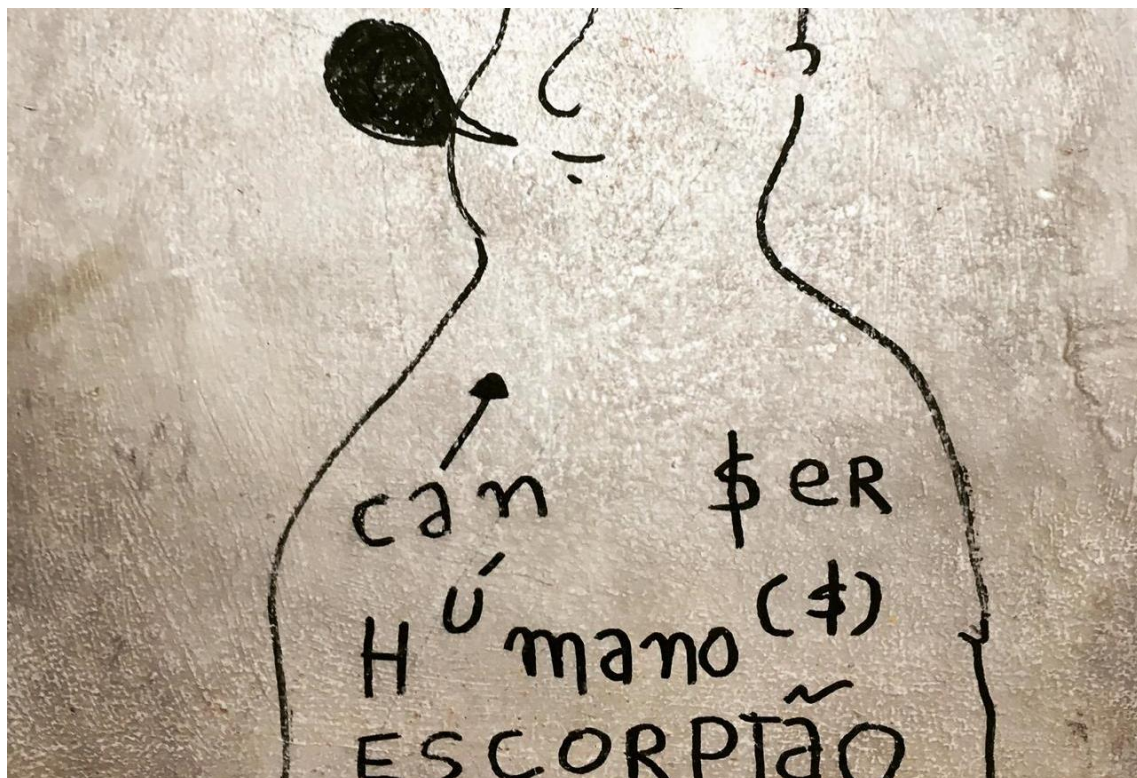 can $eR
Húmano ($)
ESCORPIãO